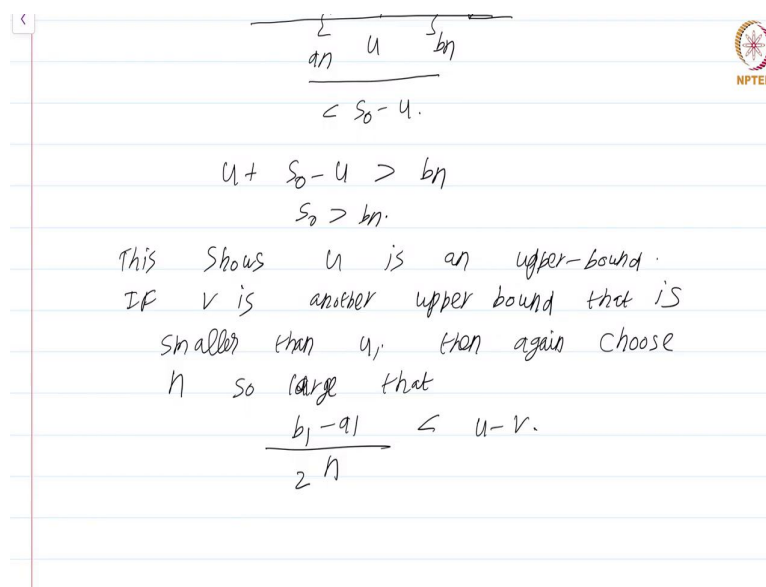 an u bn
< S₀ - u.
u + S₀ - u > bn
S₀ > bn.
This Shows u is an upper-bound.
If v is another upper bound that is
smaller than u, then again choose
n so large that
b₁ - a₁ < u - v.
2ⁿ
NPTEL